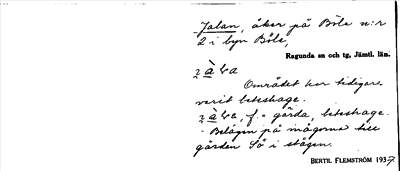 Jalan, åker på Böle n:r
2 i byn Böle,
Ragunda sn och tg, Jämtl. län.
Området har tidigare
varit beteshage.
f. = gärda, beteshage.
- Belägen på mågorna till
gården Sö i stågen.
BERTIL FLEMSTRÖM 1937.